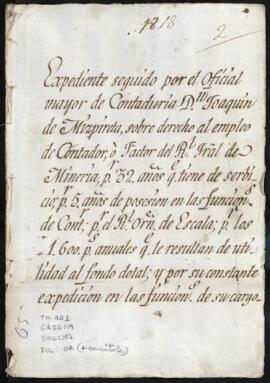 1818
2
Expediente seguido por el Oficial
mayor de Contaduria D.n Joaquin
de Mizpireta, sobre derecho al empleo
de Contador, ó Factor del R.l Tral de
Mineria, p.r 32. años q.e tiene de servi-
cio; p.r 5. años de posesion en las funcion.s
de Con.r; p.r el R.l Orn. de Escala; p.r los
1.600. p.s anuales q.e le resultan de uti-
lidad al fondo dotal; y por su constante
expedicion en las funcion.s de su cargo
TM-AD1
FOL: 08 (+ carátula)